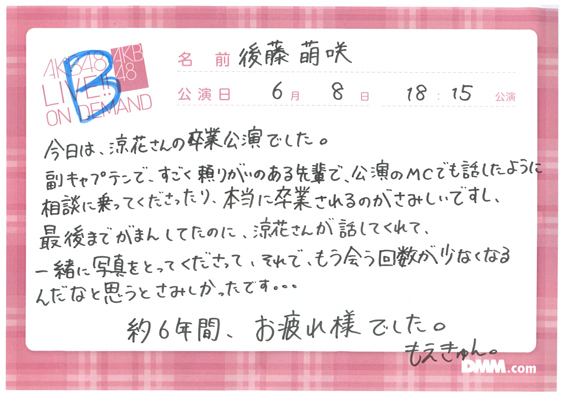 AKB48
LIVE!!
ON DEMAND
AKB
48
B
名前 後藤 萌咲
公演日 6月 8日 18:15 公演
今日は、涼花さんの卒業公演でした。
副キャプテンで、すごく頼りがいのある先輩で、公演のMCでも話したように
相談に乗ってくださったり、本当に卒業されるのがさみしいですし、
最後までがまんしてたのに、涼花さんが話してくれて、
一緒に写真をとってくださって、それで、もう会う回数が少なくなる
んだなと思うとさみしかったです...
約6年間、お疲れ様でした。
もえきゅん。
DMM.com